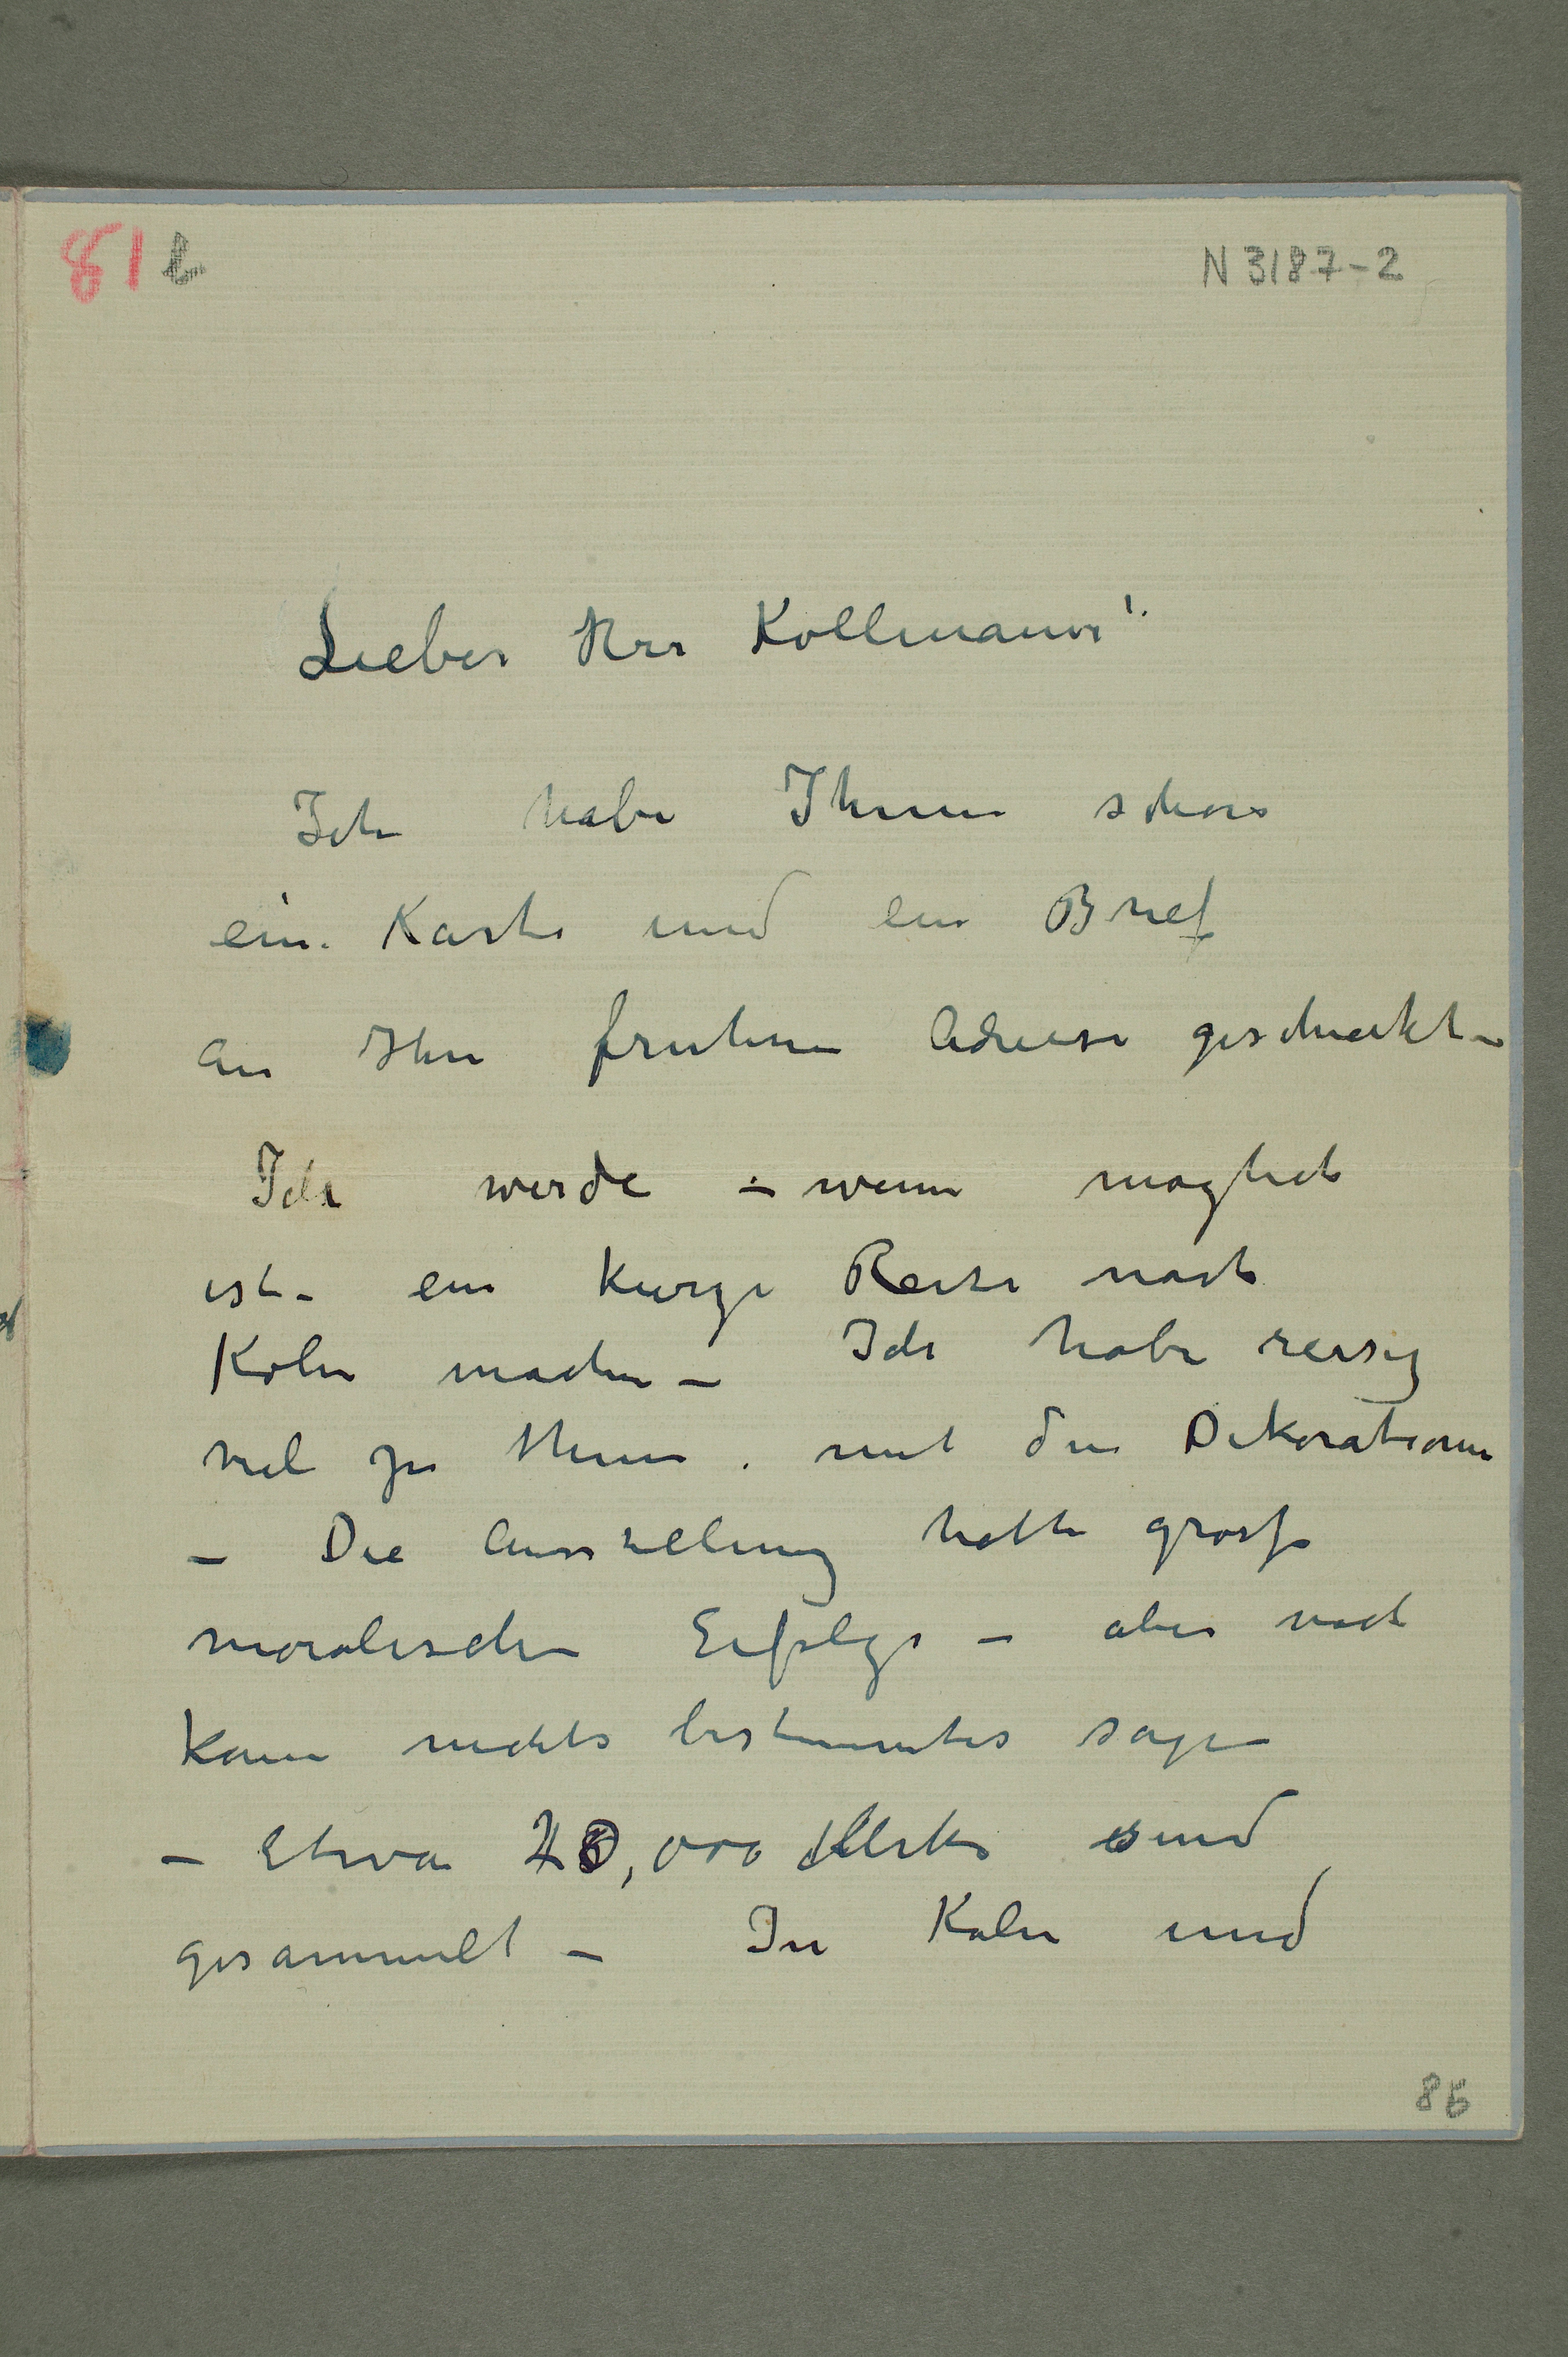 81b
N 3187-2
Lieber Herr Kollmann!
Ich habe Ihnen schon
eine Karte und ein Brief
an Ihre fruhere Adresse geschickt –
Ich werde – wenn moglich
ist – ein kurze Reise nach
Koln machen – Ich habe riesig
viel zu thun. mit den Dekorationen
– Die Ausstellung hatte grosse
moralischen Erfolge – aber noch
kann nichts bestimmtes sagen
– Etwa 20,000 Mrk sind
gesammelt – In Koln und
86